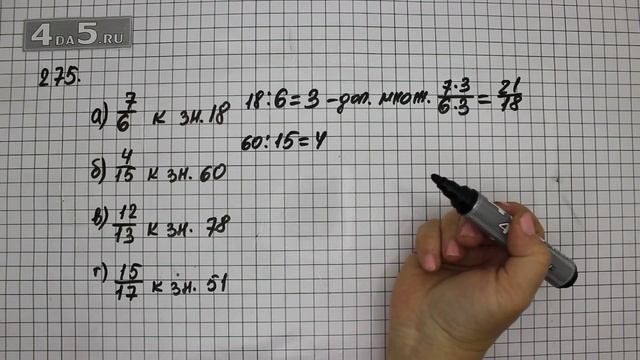 4DA5.RU
275.
а) 7/6 к зн. 18
18:6=3 - доп. множ. 7·3/6·3 = 21/18
б) 4/15 к зн. 60
60:15=4
в) 12/13 к зн. 78
г) 15/17 к зн. 51